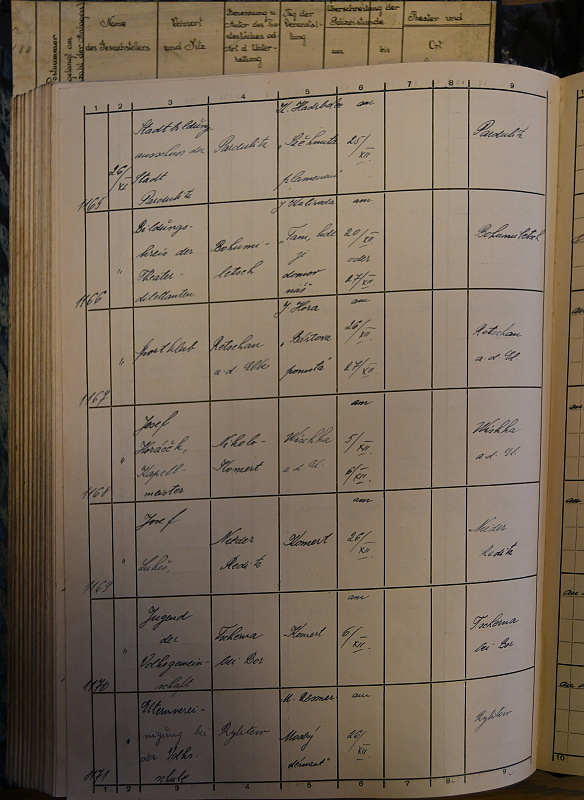 Name
des Gesuchstellers
Wohnort
und Sitz
Benennung u.
Autor des Thea-
terstückes od.
Art d. Unter-
haltung
Tag der
Veranstal-
tung
Überschreitung der
Polizeistunde
am bis
Theater und
Ort
1 2 3 4 5 6 7 8 9
1165
26/XI
Stadtbildungs
ausschuss der
Stadt
Pardubitz
Pardubitz
plamenů"
am
25/XII
Pardubitz
1166
"
Bildungs-
kreis der
Theater-
dilettanten
Bohumi-
letsch
J. Kalivoda
"Tam, kde
je
domov
náš"
am
20/XII
oder
27/XII
Bohumiletsch
1167
"
Sportklub
Retschan
a. d. Elbe
J. Hora
"Bártova
pomsta"
am
26/XII
27/XII
Retschan
a. d. El
1168
"
Josef
Horáček,
Kapell-
meister
Komert
Wischka
a. d. El.
am
5/XII
6/XII.
Wishka
a. d. El
1169
"
Josef
Lukeš,
Nieder
Reditz
Komert
am
26/XII
Nieder
Reditz
1170
"
Jugend
der
Volksgemein-
schaft
Tscherna
bei Bor
Komert
am
6/XII.
Tscherna
bei Bor
1171
"
Elternverei-
nigung bei
der Volks-
schule
Rybitew
Modrý
démant"
am
26/XII.
Rybitew
1 2 3 4 5 6 7 8 9
10